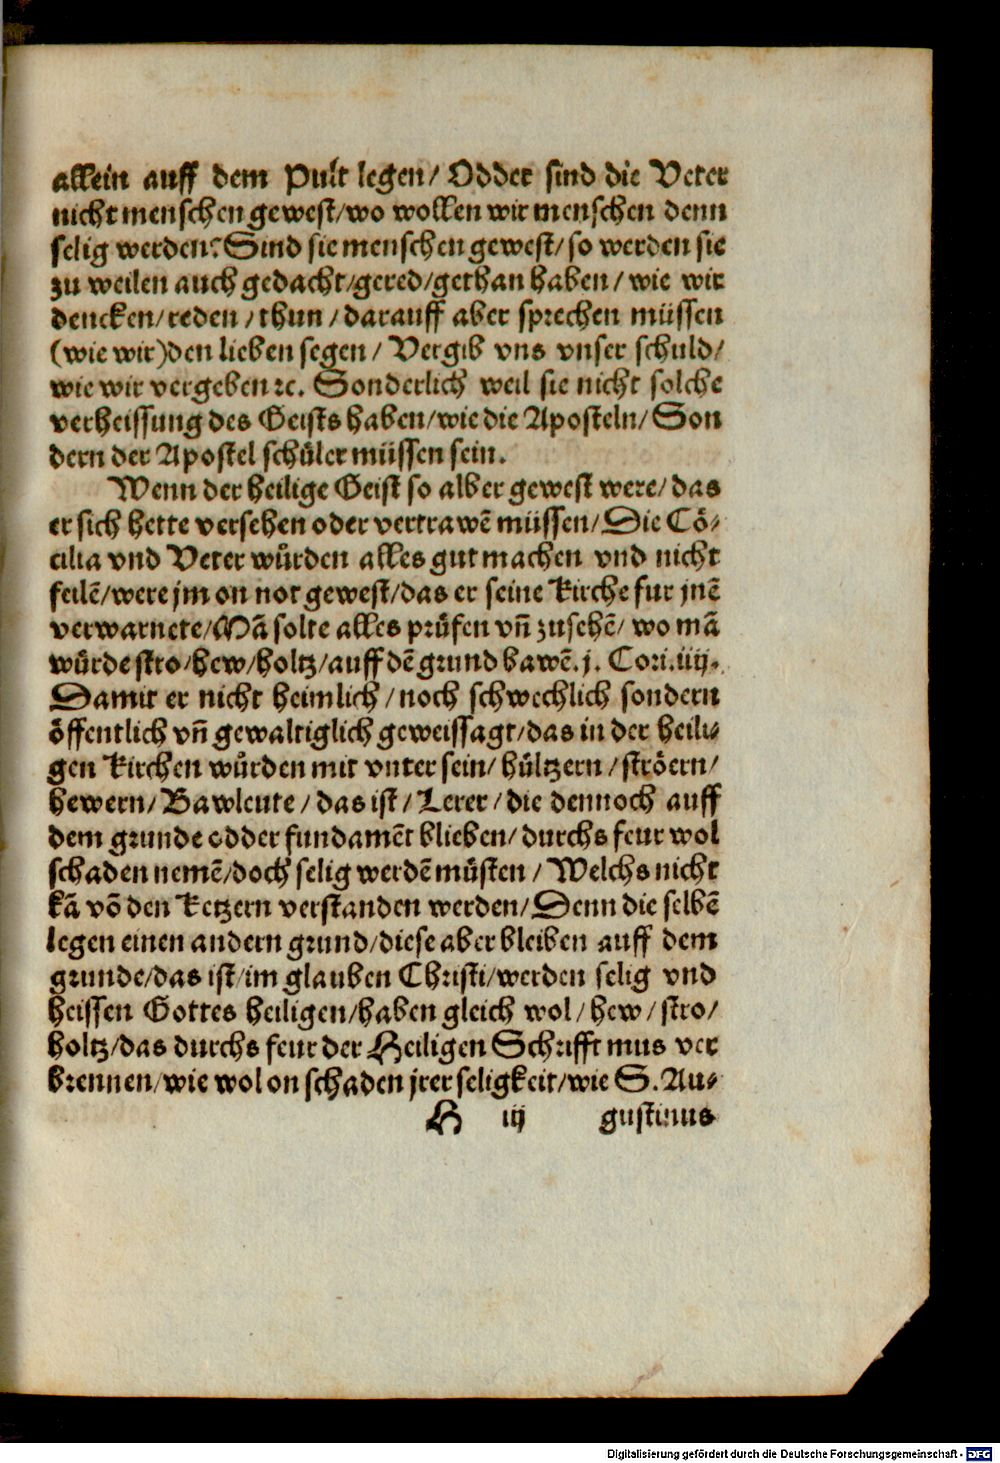 allein auff dem Pult legen/ Odder sind die Veter
nicht menschen gewest/wo wollen wir menschen denn
selig werden? Sind sie menschen gewest/ so werden sie
zu weilen auch gedacht/gered/gethan haben/ wie wir
dencken/reden/thun/darauff aber sprechen müssen
(wie wir)den lieben segen/ Vergib vns vnser schuld/
wie wir vergeben ꝛc. Sonderlich weil sie nicht solche
verheissung des Geists haben/wie die Aposteln/ Son
dern der Apostel schüler müssen sein.
Wenn der heilige Geist so alber gewest were/ das
er sich hette versehen oder vertrawē müssen/ Die Cō⸗
cilia vnd Veter würden alles gut machen vnd nicht
feilē/were jm on not gewest/das er seine Kirche fur jnē
verwarnete/Mā solte alles prüfen vn̄ zusehē/ wo mā
würde stro/hew/holtz/auff dē grund bawē. j. Cori. iiij.
Damit er nicht heimlich/noch schwechlich sondern
öffentlich vn̄ gewaltiglich geweissagt/das in der heili⸗
gen Kirchen würden mit vnter sein/ hültzern/ströern/
hewern/ Bawleute/das ist/ Lerer/die dennoch auff
dem grunde odder fundamēt blieben/durchs feur wol
schaden nemē/doch selig werdē müsten/ Welchs nicht
kā vō den Ketzern verstanden werden/ Denn die selbē
legen einen andern grund/diese aber bleiben auff dem
grunde/das ist/im glauben Christi/werden selig vnd
heissen Gottes heiligen/haben gleich wol/hew/stro/
holtz/das durchs feur der Heiligen Schrifft mus ver
brennen/wie wol on schaden jrer seligkeit/wie S. Au⸗
H iij gustinus
Digitalisierung gefördert durch die Deutsche Forschungsgemeinschaft - DFG